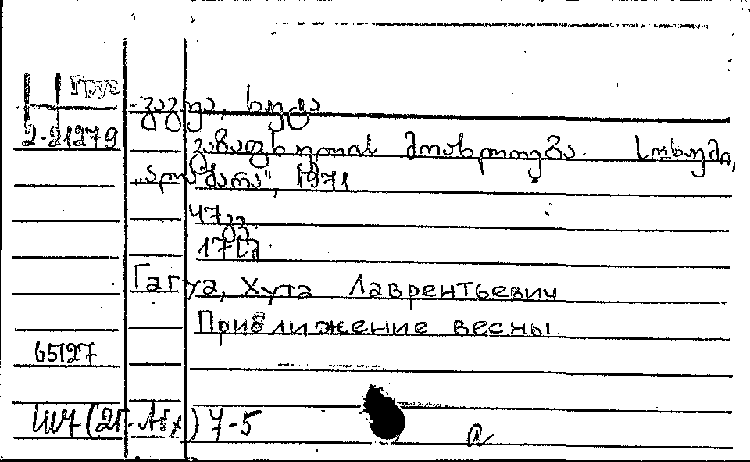 Груз
გაგუა, ხუტა
2-21279
გაზაფხულის მოახლოება. სოხუმი,
„ალაშარა", 1971
47 გვ.
Гагуа, Хута Лаврентьевич
Приближение весны
65127
7-5
a